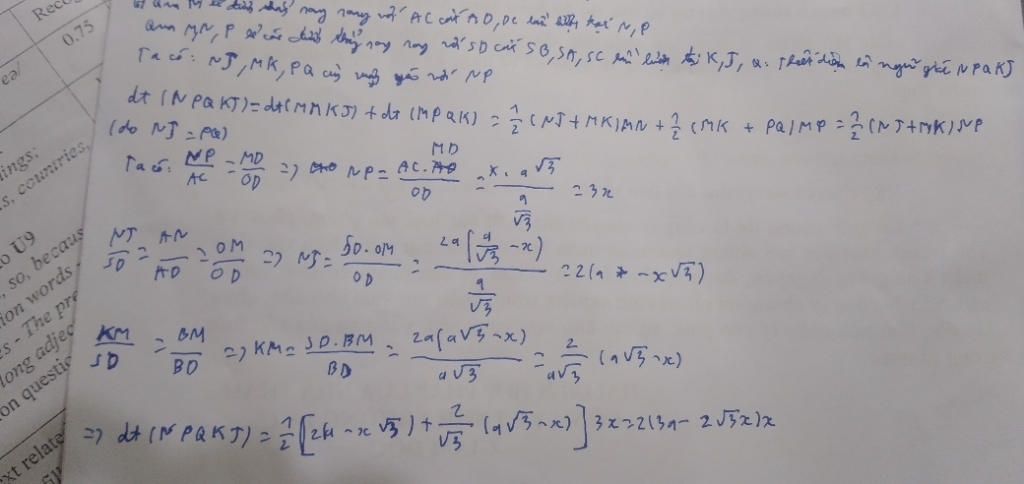 Reco
0.75
ea/
ings:
, countries,
o U9
, so, becaus
ion words
s - The pre
long adjec
on questic
xt relate
Qua M kẻ đường thẳng song song với AC cắt AD, DC lần lượt tại N, P
Qua M, N, P kẻ các đường thẳng song song với SD cắt SB, SA, SC lần lượt tại K, J, Q. Thiết diện là ngũ giác NPQKJ
Ta có: NJ, MK, PQ cùng vuông góc với NP
dt (NPQKJ) = dt(NMKJ) + dt (MPQK) = 1/2 (NJ + MK) MN + 1/2 (MK + PQ) MP = 1/2 (NJ + MK) NP
(do NJ = PQ)
Ta có: NP/AC = MD/OD => NP = AC.MD/OD = x.a√3/(a/√3) = 3x
NJ/SD = AN/AD = OM/OD => NJ = SD.OM/OD = 2a(a/√3 - x)/(a/√3) = 2(a - x√3)
KM/SD = BM/BD => KM = SD.BM/BD = 2a(a√3 - x)/(a√3) = 2/(a√3) (a√3 - x)
=> dt (NPQKJ) = 1/2 [2(a - x√3) + 2/√3 (a√3 - x)] 3x = 2(3a - 2√3x)x